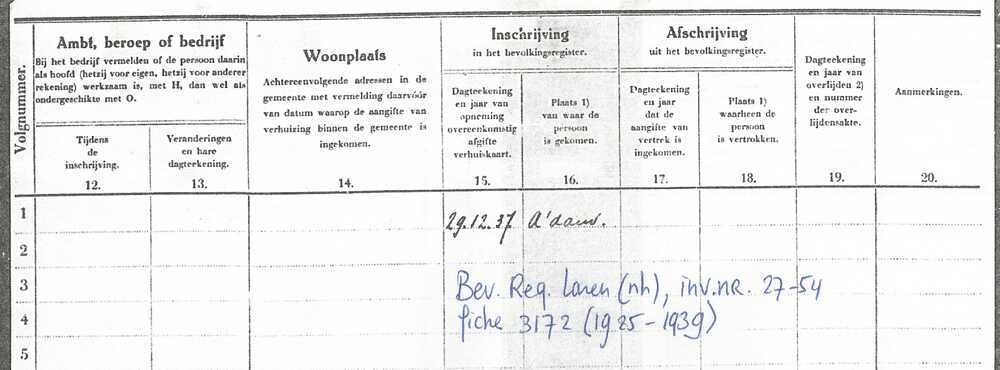 Volgnummer.
Ambt, beroep of bedrijf
Bij het bedrijf vermelden of de persoon daarin
als hoofd (hetzij voor eigen, hetzij voor anderer
rekening) werkzaam is, met H, dan wel als
ondergeschikte met O.
Tijdens
de
inschrijving.
12.
Veranderingen
en hare
dagteekening.
13.
Woonplaats
Achtereenvolgende adressen in de
gemeente met vermelding daarvóór
van datum waarop de aangifte van
verhuizing binnen de gemeente is
ingekomen.
14.
Inschrijving
in het bevolkingsregister.
Dagteekening
en jaar van
opneming
overeenkomstig
afgifte
verhuiskaart.
15.
Plaats 1)
van waar de
persoon
is gekomen.
16.
Afschrijving
uit het bevolkingsregister.
Dagteekening
en jaar
dat de
aangifte van
vertrek is
ingekomen.
17.
Plaats 1)
waarheen de
persoon
is vertrokken.
18.
Dagteekening
en jaar van
overlijden 2)
en nummer
der over-
lijdensakte.
19.
Aanmerkingen.
20.
1
29.12.37 A'dam.
2
3
Bev. Reg. Laren (nh), inv.nr. 27-54
4
fiche 3172 (1925-1939)
5